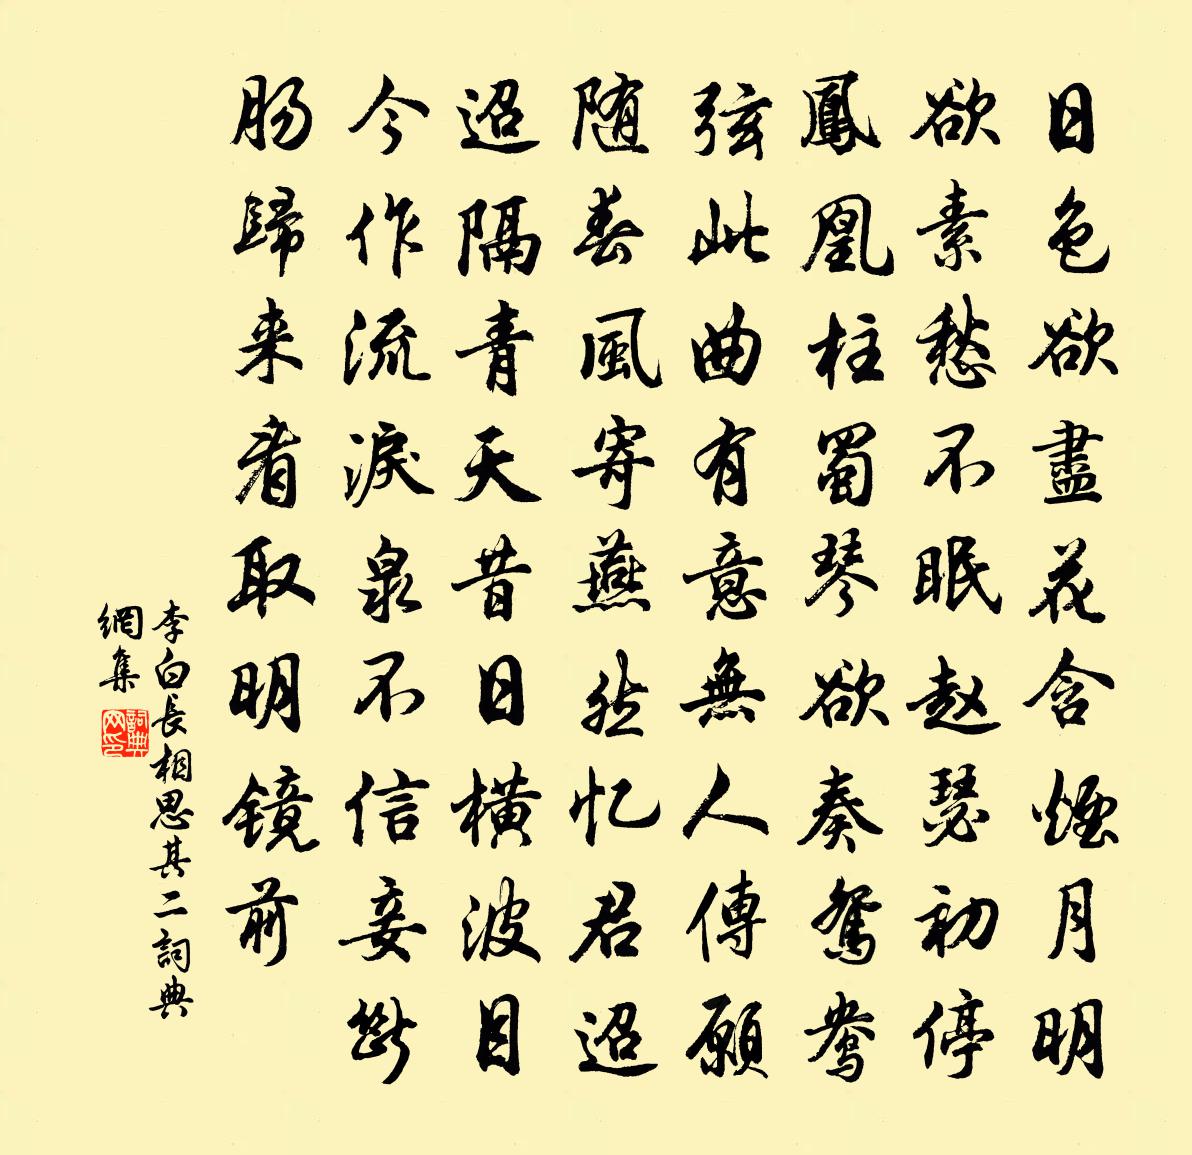 日色欲盡花含煙月明
欲素愁不眠赵瑟初停
鳳凰柱蜀琴欲奏鴛鴦
弦此曲有意無人傳願
随春風寄燕然忆君迢
迢隔青天昔日横波目
今作流淚泉不信妾斷
肠歸来看取明镜前
李白長相思其二詞典
網集
詞典
网印